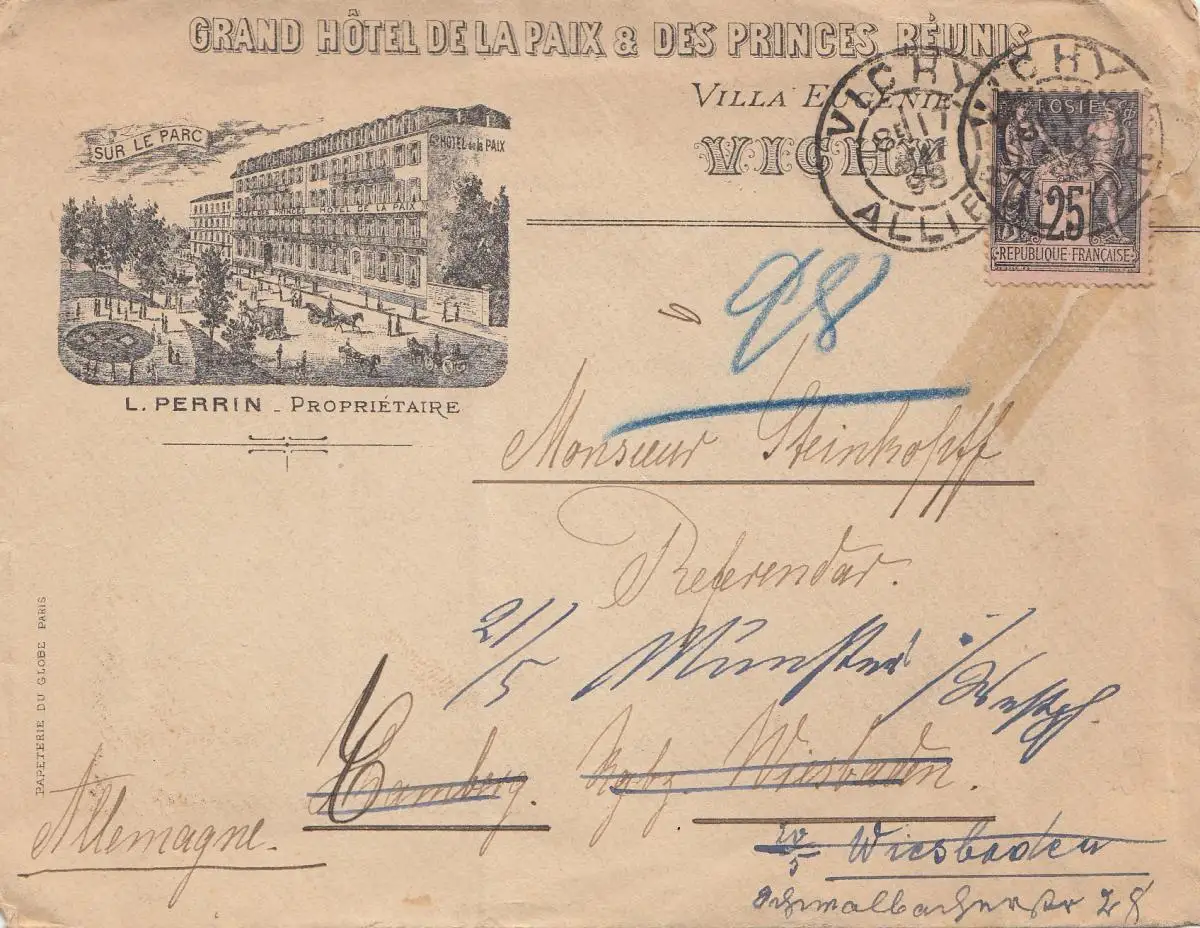 GRAND HÔTEL DE LA PAIX & DES PRINCES RÉUNIS
VILLA EUGÉNIE
VICHY
SUR LE PARC
HOTEL de la PAIX
HOTEL DES PRINCES HÔTEL DE LA PAIX
L. PERRIN _ PROPRIÉTAIRE
VICHY
ALLIER
17
MAI
98
VICHY
POSTES
25
RÉPUBLIQUE FRANÇAISE
98
Monsieur Steinkopff
Referendar.
21/5 Münster i/Westph
Camberg. Rgbz. Wiesbaden.
Allemagne.
20/5 Wiesbaden
Schwalbacherstr 28
PAPETERIE DU GLOBE PARIS